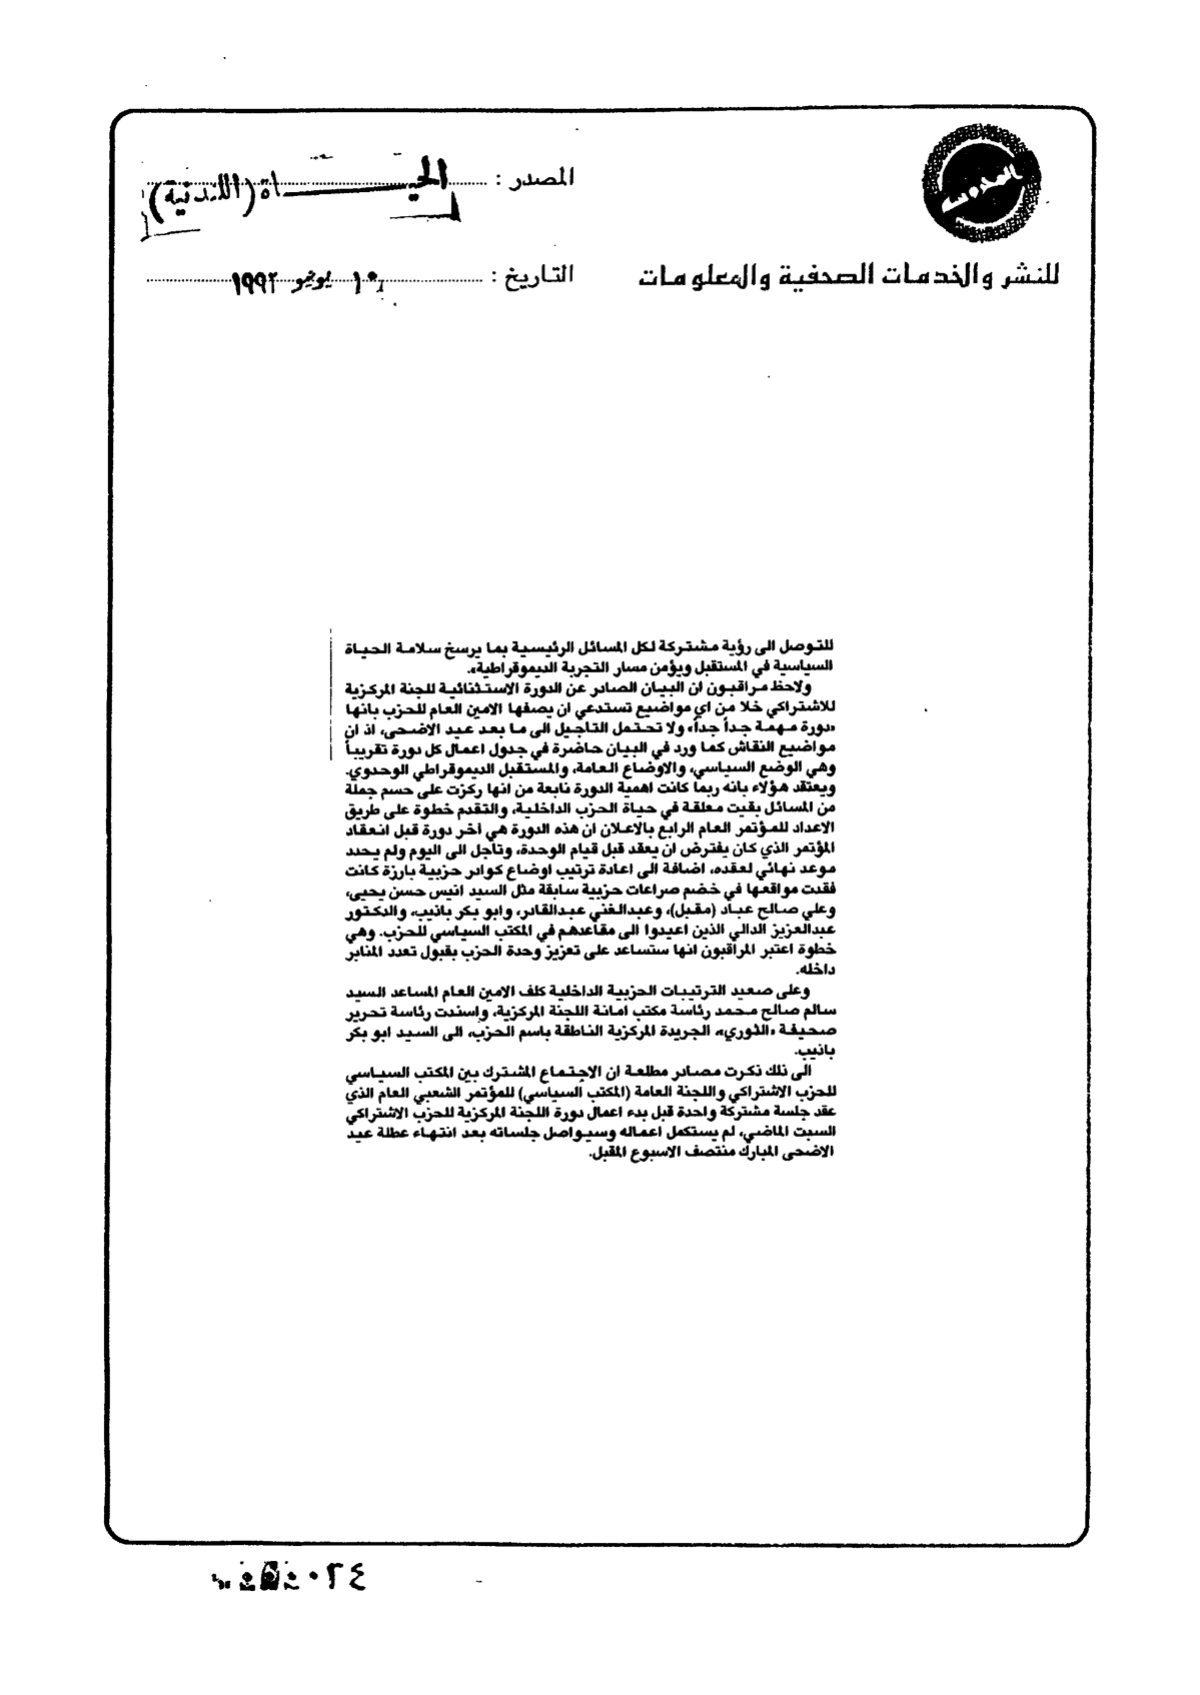 المصدر : الحيـــاة (اللندنية)
للنشر والخدمات الصحفية والمعلومات
التاريخ : ١٠ يونيو ١٩٩٢
للتوصل الى رؤية مشتركة لكل المسائل الرئيسية بما يرسخ سلامة الحياة
السياسية في المستقبل ويؤمن مسار التجربة الديموقراطية».
ولاحظ مراقبون ان البيان الصادر عن الدورة الاستثنائية للجنة المركزية
للاشتراكي خلا من اي مواضيع تستدعي ان يصفها الامين العام للحزب بانها
«دورة مهمة جداً جداً» ولا تحتمل التاجيل الى ما بعد عيد الاضحى، اذ ان
مواضيع النقاش كما ورد في البيان حاضرة في جدول اعمال كل دورة تقريباً
وهي الوضع السياسي، والاوضاع العامة، والمستقبل الديموقراطي الوحدوي.
ويعتقد هؤلاء بانه ربما كانت اهمية الدورة نابعة من انها ركزت على حسم جملة
من المسائل بقيت معلقة في حياة الحزب الداخلية، والتقدم خطوة على طريق
الاعداد للمؤتمر العام الرابع بالاعلان ان هذه الدورة هي اخر دورة قبل انعقاد
المؤتمر الذي كان يفترض ان يعقد قبل قيام الوحدة، وتاجل الى اليوم ولم يحدد
موعد نهائي لعقده، اضافة الى اعادة ترتيب اوضاع كوادر حزبية بارزة كانت
فقدت مواقعها في خضم صراعات حزبية سابقة مثل السيد انيس حسن يحيى،
وعلي صالح عباد (مقبل)، وعبدالغني عبدالقادر، وابو بكر باذيب، والدكتور
عبدالعزيز الدالي الذين اعيدوا الى مقاعدهم في المكتب السياسي للحزب. وهي
خطوة اعتبر المراقبون انها ستساعد على تعزيز وحدة الحزب بقبول تعدد المنابر
داخله.
وعلى صعيد الترتيبات الحزبية الداخلية كلف الامين العام المساعد السيد
سالم صالح محمد رئاسة مكتب امانة اللجنة المركزية، واسندت رئاسة تحرير
صحيفة «الثوري»، الجريدة المركزية الناطقة باسم الحزب، الى السيد ابو بكر
باذيب.
الى ذلك ذكرت مصادر مطلعة ان الاجتماع المشترك بين المكتب السياسي
للحزب الاشتراكي واللجنة العامة (المكتب السياسي) للمؤتمر الشعبي العام الذي
عقد جلسة مشتركة واحدة قبل بدء اعمال دورة اللجنة المركزية للحزب الاشتراكي
السبت الماضي، لم يستكمل اعماله وسيواصل جلساته بعد انتهاء عطلة عيد
الاضحى المبارك منتصف الاسبوع المقبل.